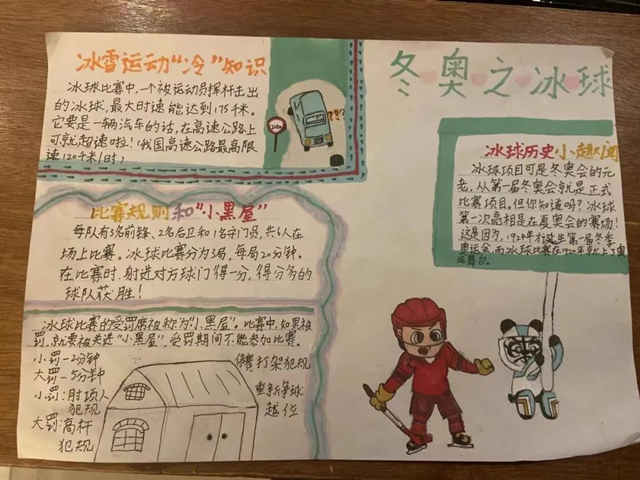 冬奥之冰球
冰雪运动“冷”知识
冰球比赛中,一个被运动员挥杆击出
的冰球,最大时速能达到175千米。
它要是一辆汽车的话,在高速公路上
可就超速啦!(我国高速公路最高限
速120千米/时)
冰球历史小趣闻
冰球项目可是冬奥会的元
老,从第一届冬奥会就是正式
比赛项目。但你知道吗?冰球
第一次亮相是在夏奥会的赛场!
这是因为,1924年才
第一届冬季
奥运会,而冰球比赛在1920年就上了奥
运舞台。
比赛规则和“小黑屋”
每队有3名前锋、2名后卫和1名守门员,共6人在
场上比赛。冰球比赛分为3局,每局20分钟。
在比赛时,射进对方球门得一分,得分多的
球队获胜!
冰球比赛的受罚席被称为“小黑屋”。比赛中,如果被
罚,就要被关进“小黑屋”,受罚期间不能参加比赛。
小罚—2分钟
大罚—5分钟
小罚:肘顶人
犯规
大罚:高杆
犯规
打架犯规
重新争球
越位